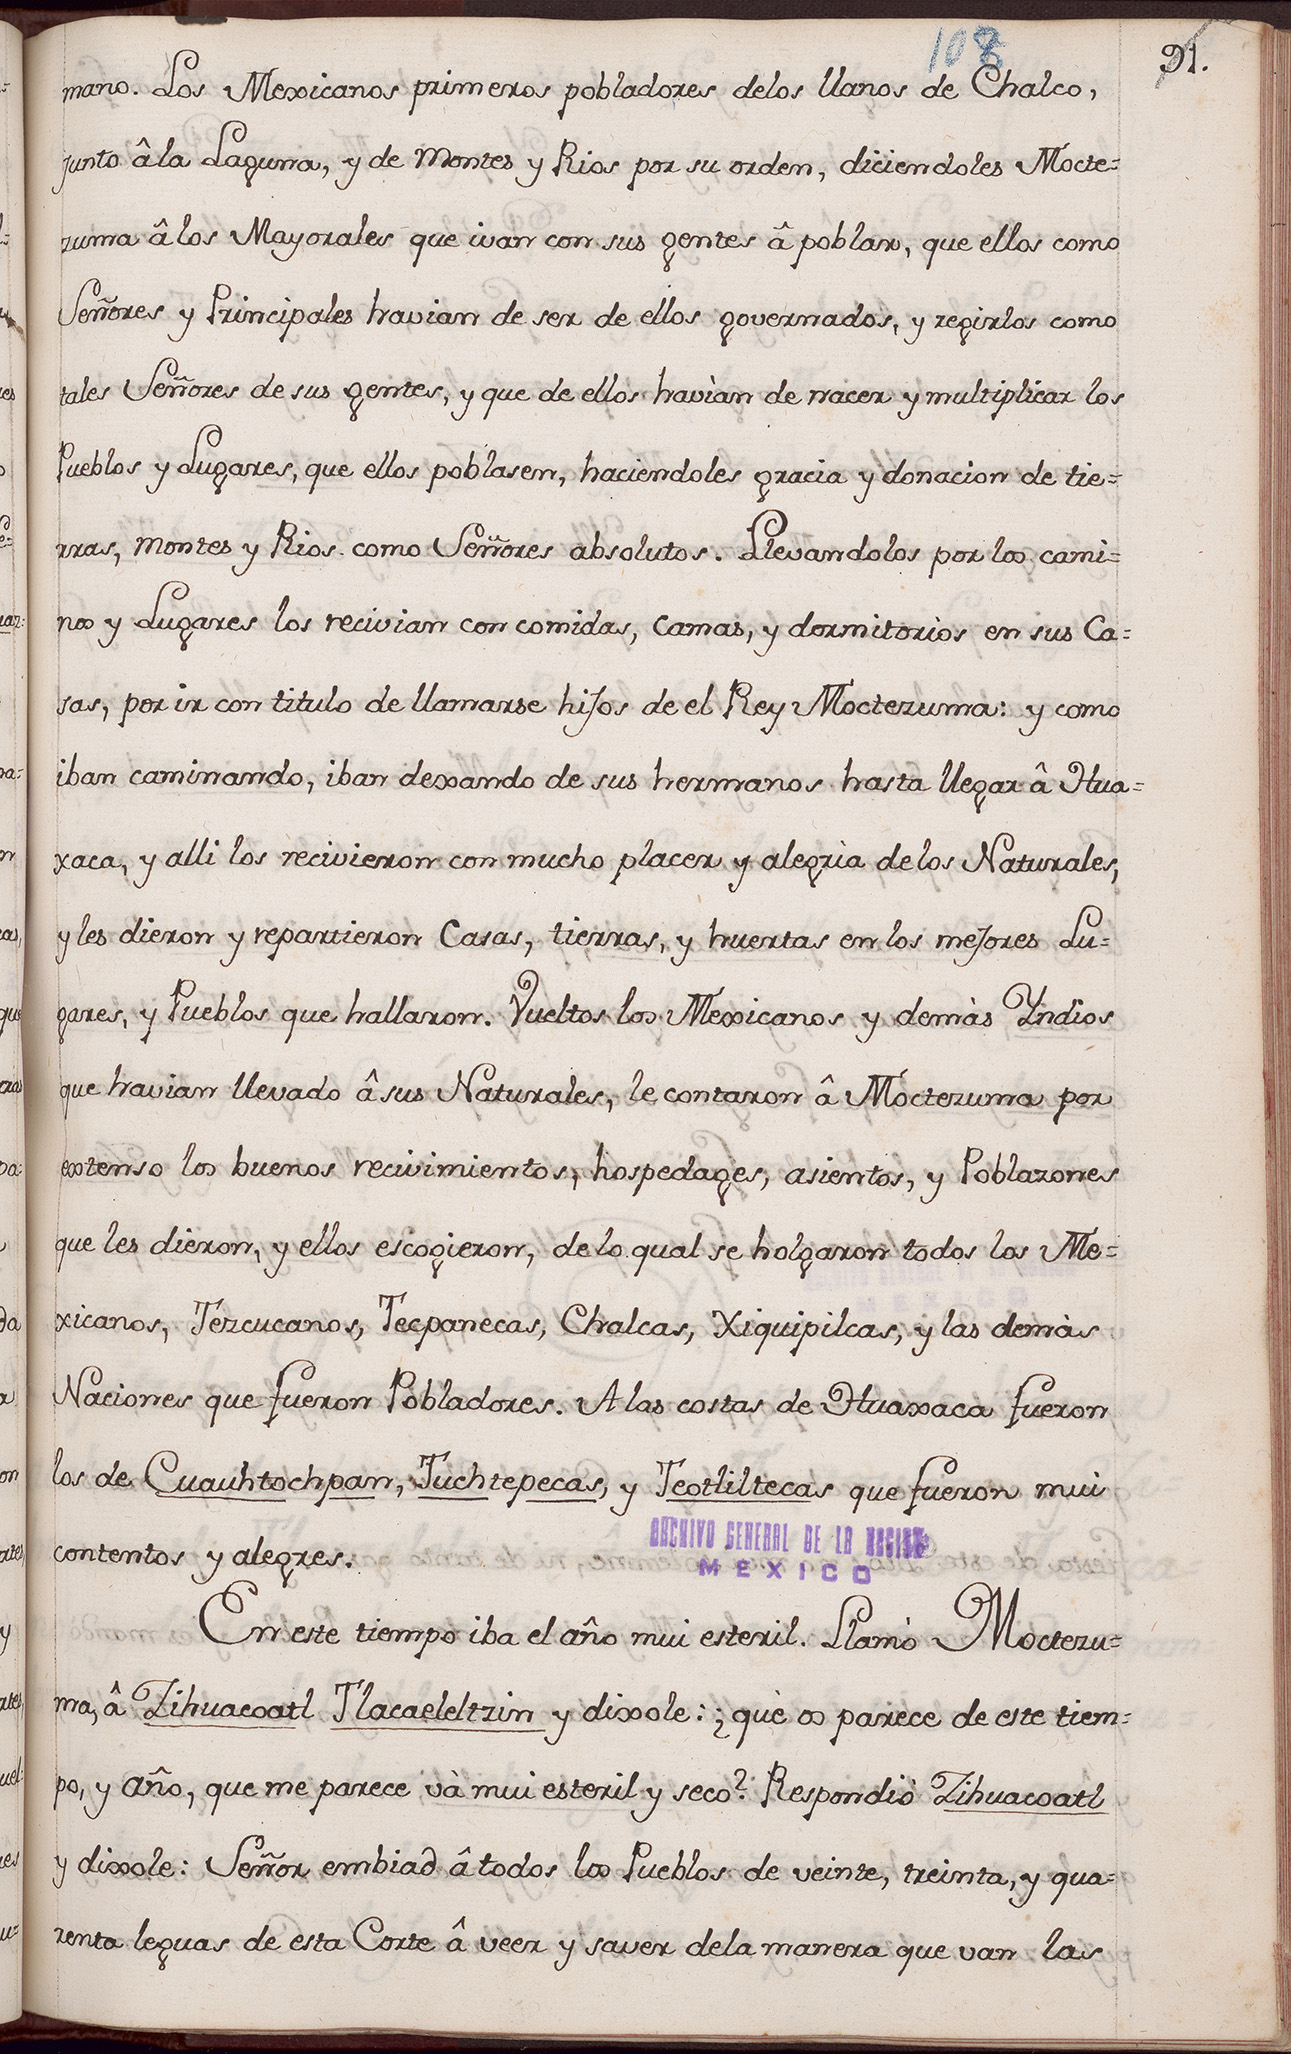 108
91.
mano. Los Mexicanos primeros pobladores delos llanos de Chalco,
junto â la Laguna, y de Montes y Rios por su orden, diciendoles Mocte=
zuma â los Mayorales que ivan con sus gentes â poblar, que ellos como
Señores y Principales havian de ser de ellos governados, y regirlos como
tales Señores de sus gentes, y que de ellos havìan de nacer y multiplicar los
Pueblos y Lugares, que ellos poblasen, haciendoles gracia y donacion de tie=
rras, Montes y Rios como Señores absolutos. Llevandolos por los cami=
nos y Lugares los recivian con comidas, camas, y dormitorios en sus Ca=
sas, por ir con titulo de llamarse hijos de el Rey Moctezuma: y como
iban caminando, iban dexando de sus hermanos hasta llegar â Hua=
xaca, y alli los recivieron con mucho placer y alegrìa de los Naturales,
y les dieron y repartieron Casas, tierras, y huertas en los mejores Lu=
gares, y Pueblos que hallaron. Vueltos los Mexicanos y demàs Yndios
que havian llevado â sus Naturales, le contaron â Moctezuma por
extenso los buenos recivimientos, hospedages, asientos, y Poblazones
que les dieron, y ellos escogieron, de lo qual se holgaron todos los Me=
xicanos, Tezcucanos, Tecpanecas, Chalcas, Xiquipilcas, y las demàs
Naciones que fueron Pobladores. A las costas de Huaxaca fueron
los de Cuauhtochpan, Tuchtepecas, y Teotliltecas que fueron mui
contentos y alegres.
ARCHIVO GENERAL DE LA NACION
MEXICO
En este tiempo iba el año mui esteril. Llamò Moctezu=
ma, â Zihuacoatl Tlacaeleltzin y dixole: ¿què os parece de este tiem=
po, y año, que me parece và mui esteril y seco? Respondiò Zihuacoatl
y dixole: Señor embiad â todos los Pueblos de veinte, treinta, y qua=
renta leguas de esta Corte â veer y saver dela manera que van las